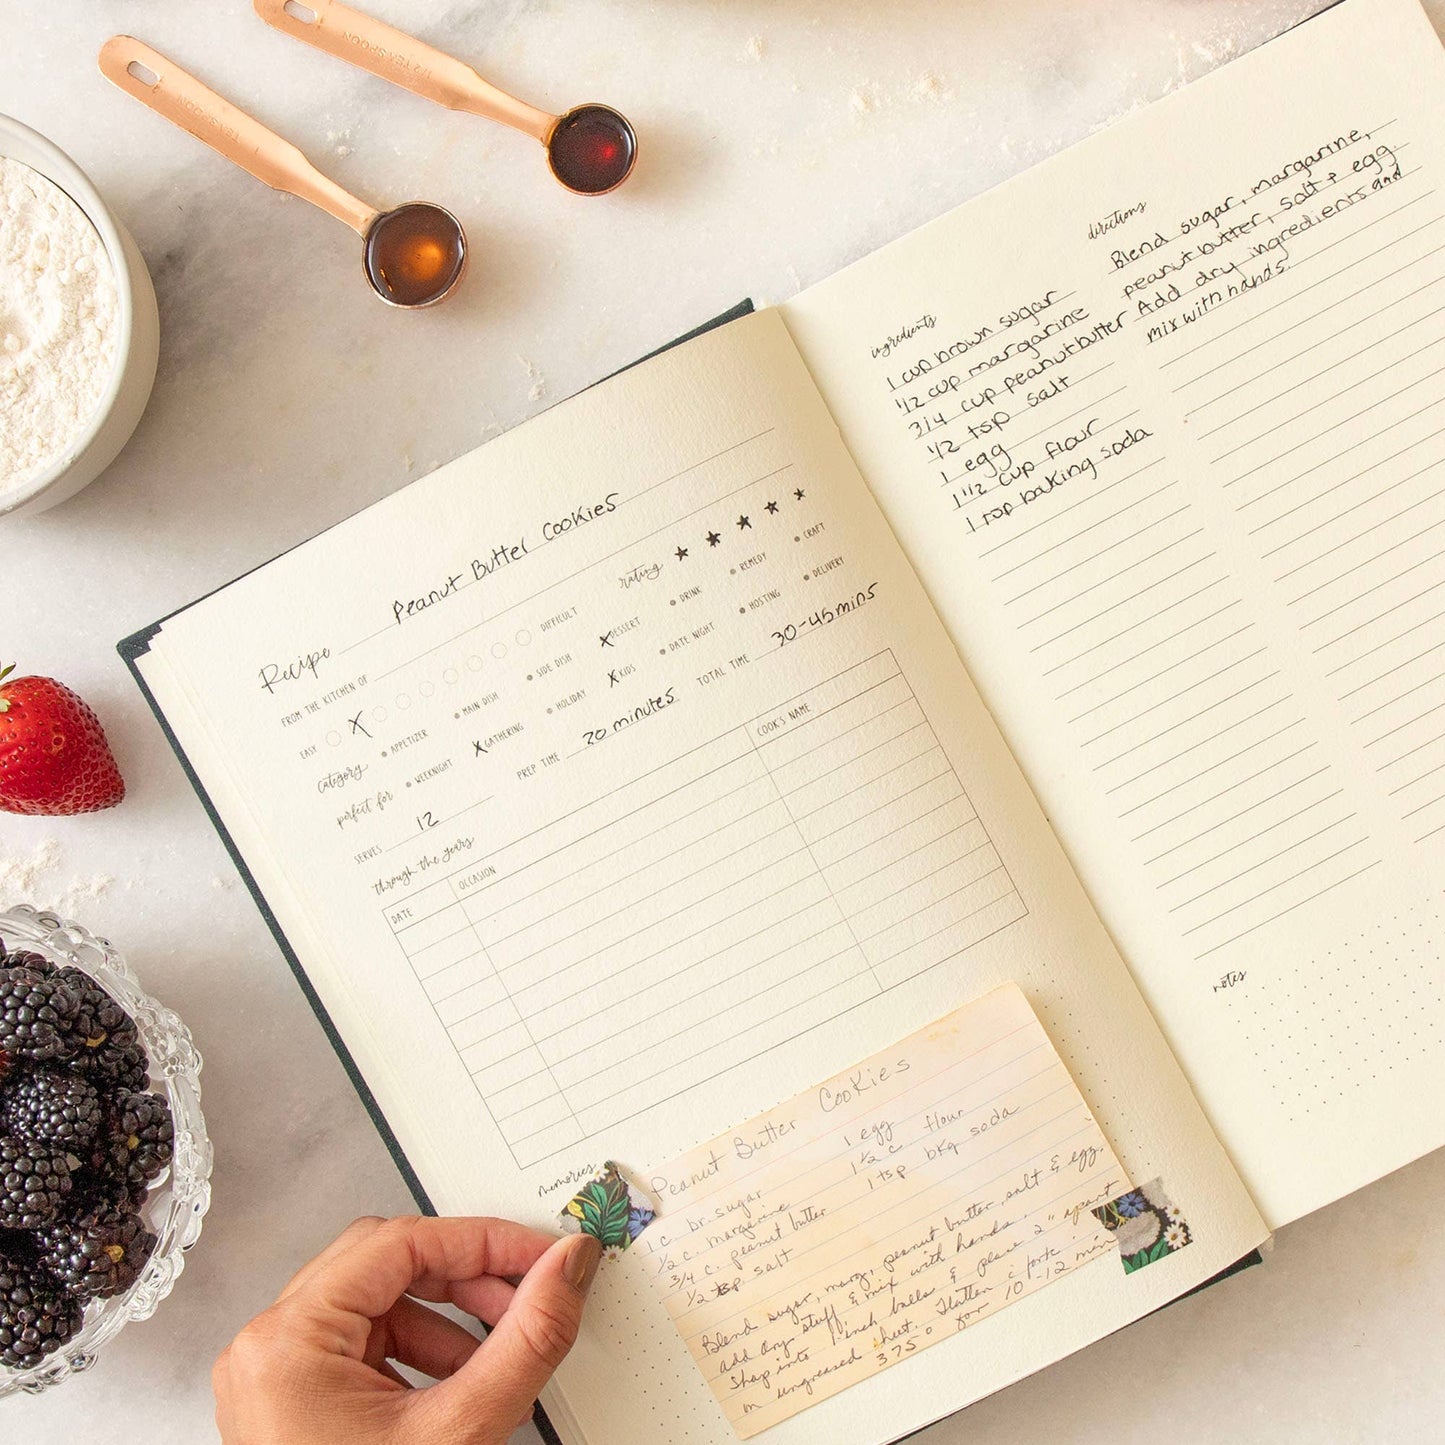 1 TEASPOON
1/2 TEASPOON
Recipe Peanut Butter Cookies
FROM THE KITCHEN OF
EASY X DIFFICULT
rating
category
APPETIZER MAIN DISH SIDE DISH X DESSERT DRINK REMEDY CRAFT
perfect for
WEEKNIGHT X GATHERING HOLIDAY X KIDS DATE NIGHT HOSTING DELIVERY
SERVES 12 PREP TIME 20 minutes TOTAL TIME 30-45 mins
through the years
DATE OCCASION COOK'S NAME
memories
Peanut Butter Cookies
1 c. br. sugar 1 egg
1/2 c. margarine 1 1/2 c flour
3/4 c. peanut butter 1 tsp bkg soda
1/2 tsp. salt
Blend sugar, marg, peanut butter, salt & egg.
add dry stuff & mix with hands.
Shap into 1 inch balls & place 2" apart
on ungreased sheet. Flatten c fork
375° for 10-12 min
ingredients
1 cup brown sugar
1/2 cup margarine
3/4 cup peanut butter
1/2 tsp salt
1 egg
1 1/2 cup flour
1 tsp baking soda
directions
Blend sugar, margarine,
peanut butter, salt + egg.
Add dry ingredients and
mix with hands.
notes